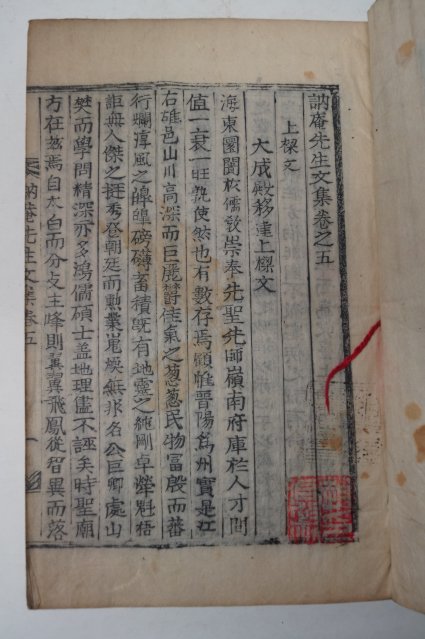 訥庵先生文集卷之五
上樑文
大成殿移建上樑文
海東團圝於儒敎崇奉先聖先師嶺南府庫於人才間
值一衰一旺孰使然也有數存焉顧惟晉陽爲州實是江
右雄邑山川高深而巨麗欝佳氣之葱葱民物富殷而蕃
行爛淳風之皥皥磅礴蓄積旣有地靈之純剛卓犖魁梧
詎無人傑之挺秀登朝廷而勲業嵬緌無非名公巨卿處山
樊而學問精深亦多鴻儒碩士盖地理儘不誣矣時聖廟
方在玆焉自太白而分支主峰則翼翼飛鳳從智異而落
訥庵先生文集卷五